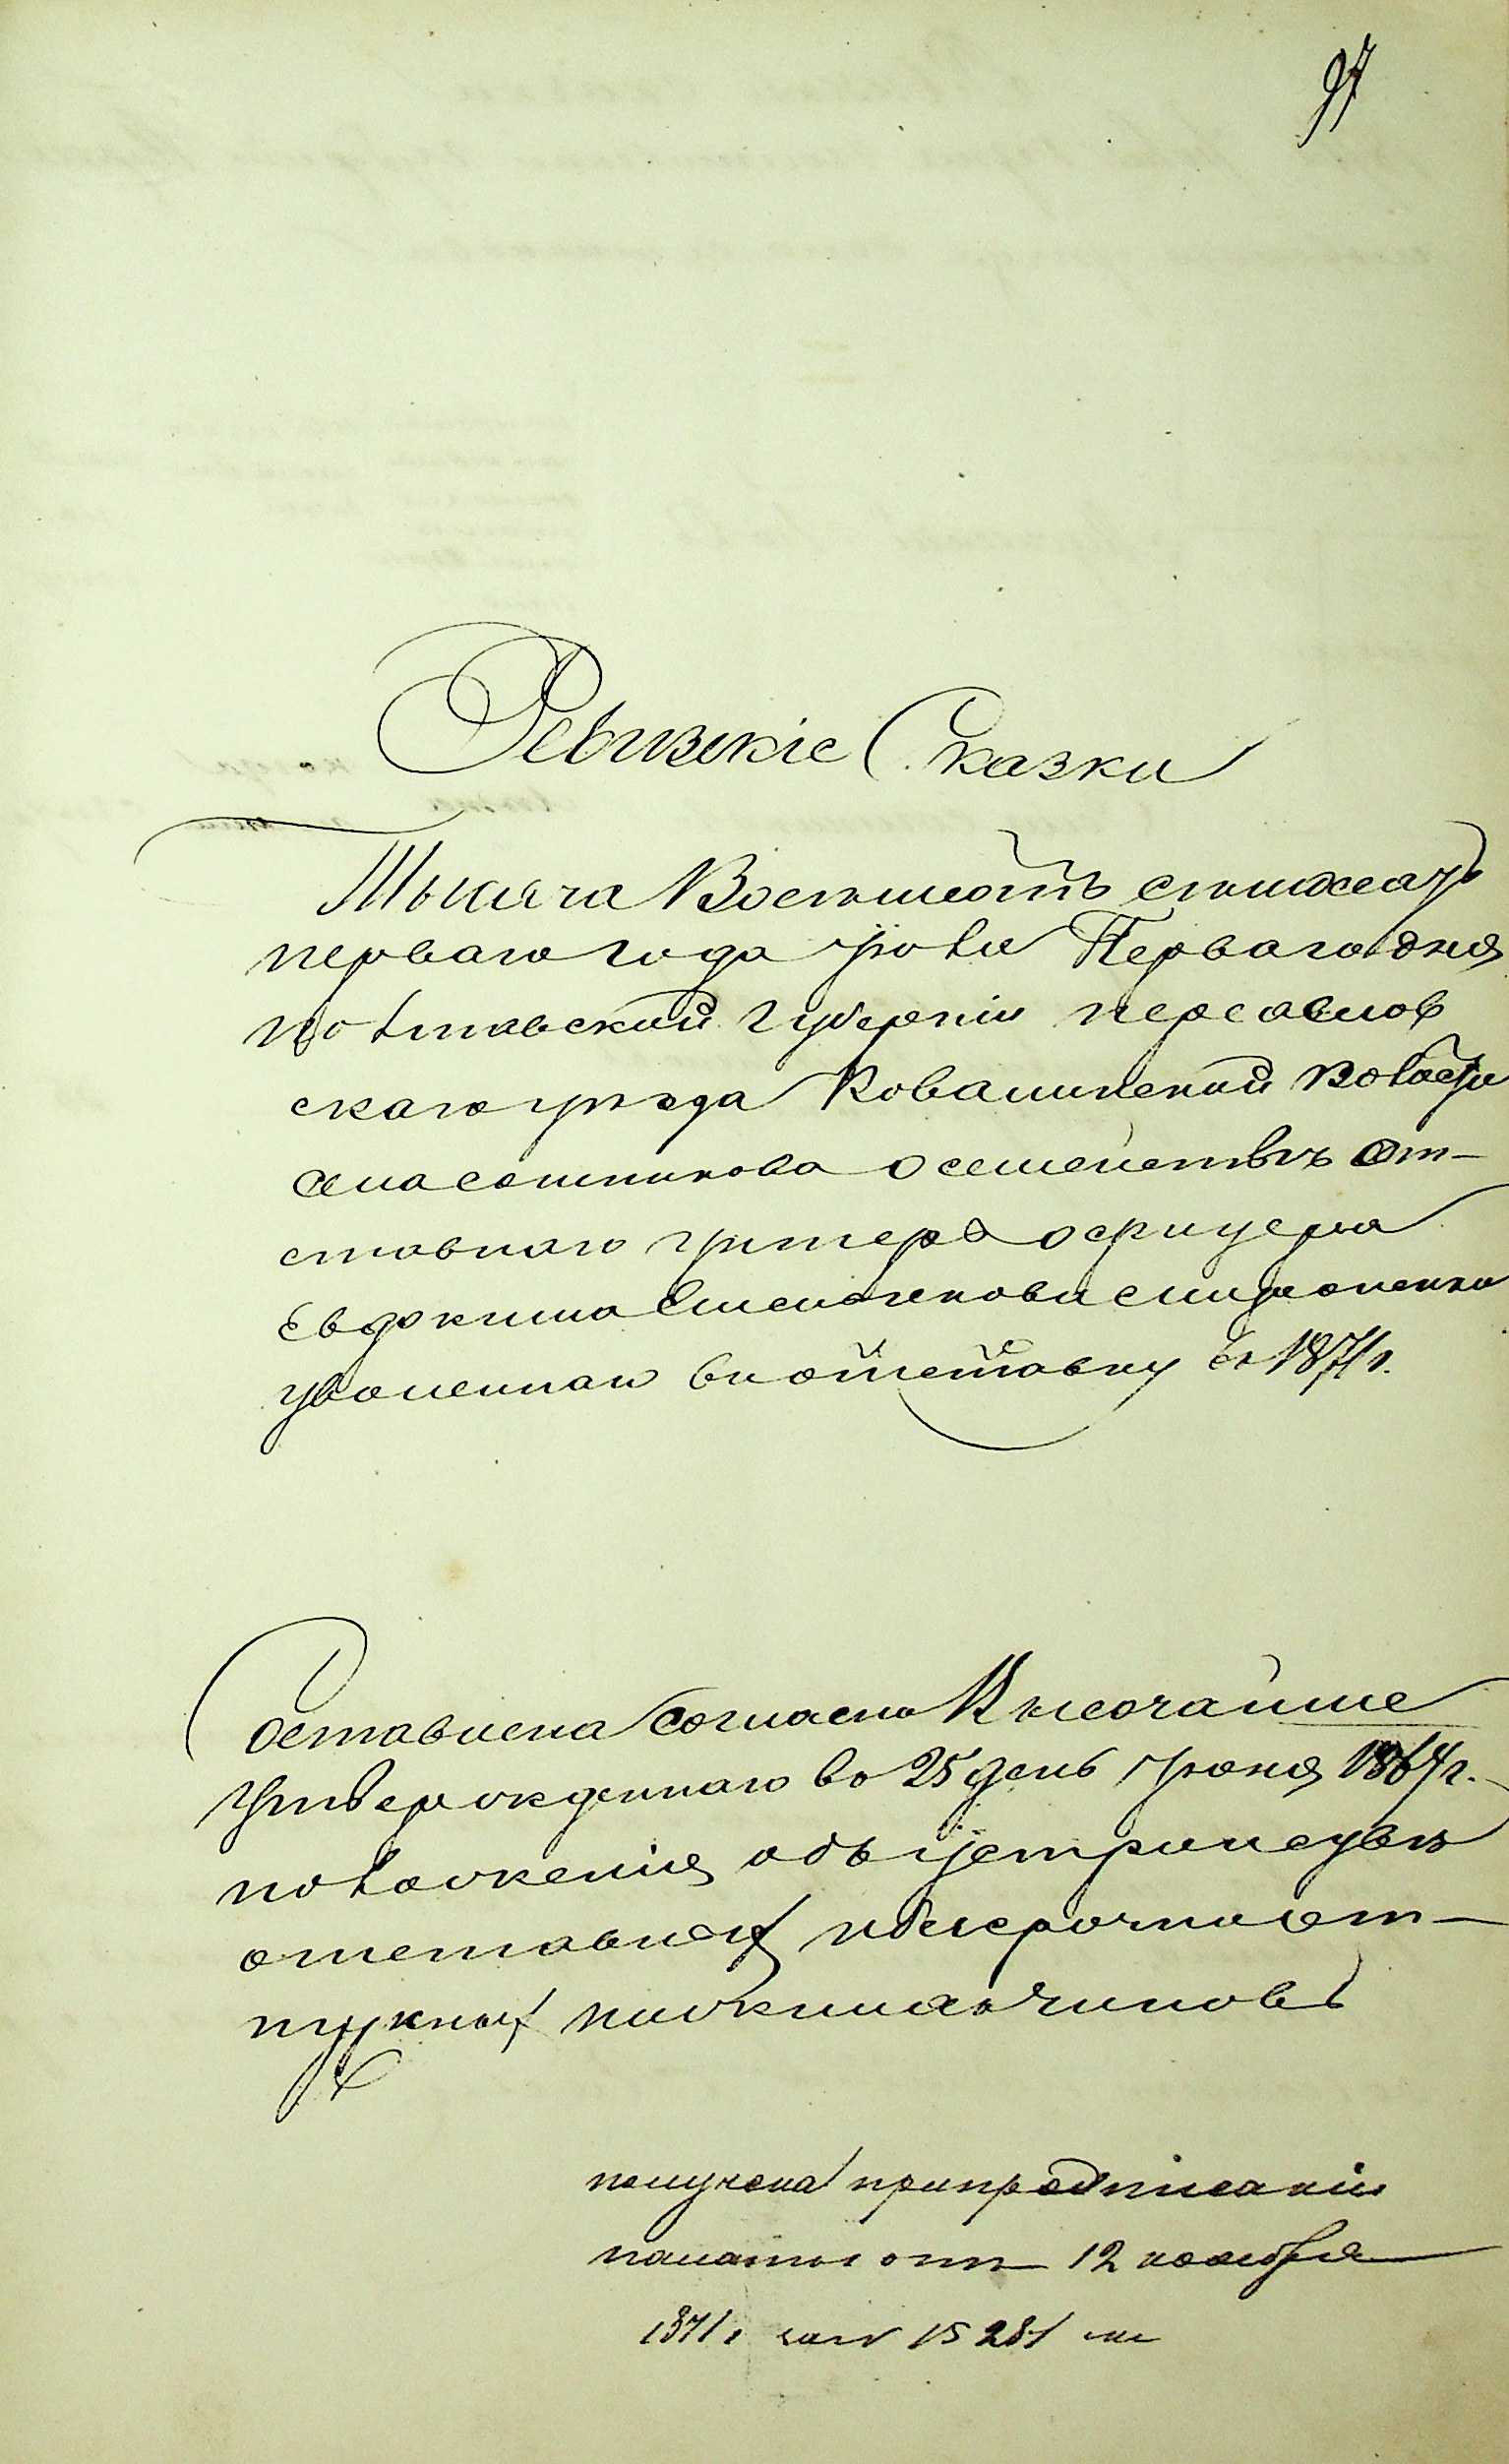 97
Ревизкіе Сказки
Тысяча Восемьсотъ семьдесятъ
перваго года июля Перваго дня
полтавской губерніи переяслов
скаго уѣзда Ковалинской волости
села сотникова о семействѣ от-
ставнаго унтеръ офицера
Евдокима Симоненка
уволеннаго въ отставку въ 1871 г.
Составлена согласно Высочайше
утвержденнаго во 25 день июня 1867 г.
положенія объ устройствѣ
отставных и безсрочно от-
пускных нижних чиновъ
получена при предписаніи
палаты отъ 12 ноября
1871 г. за № 15281